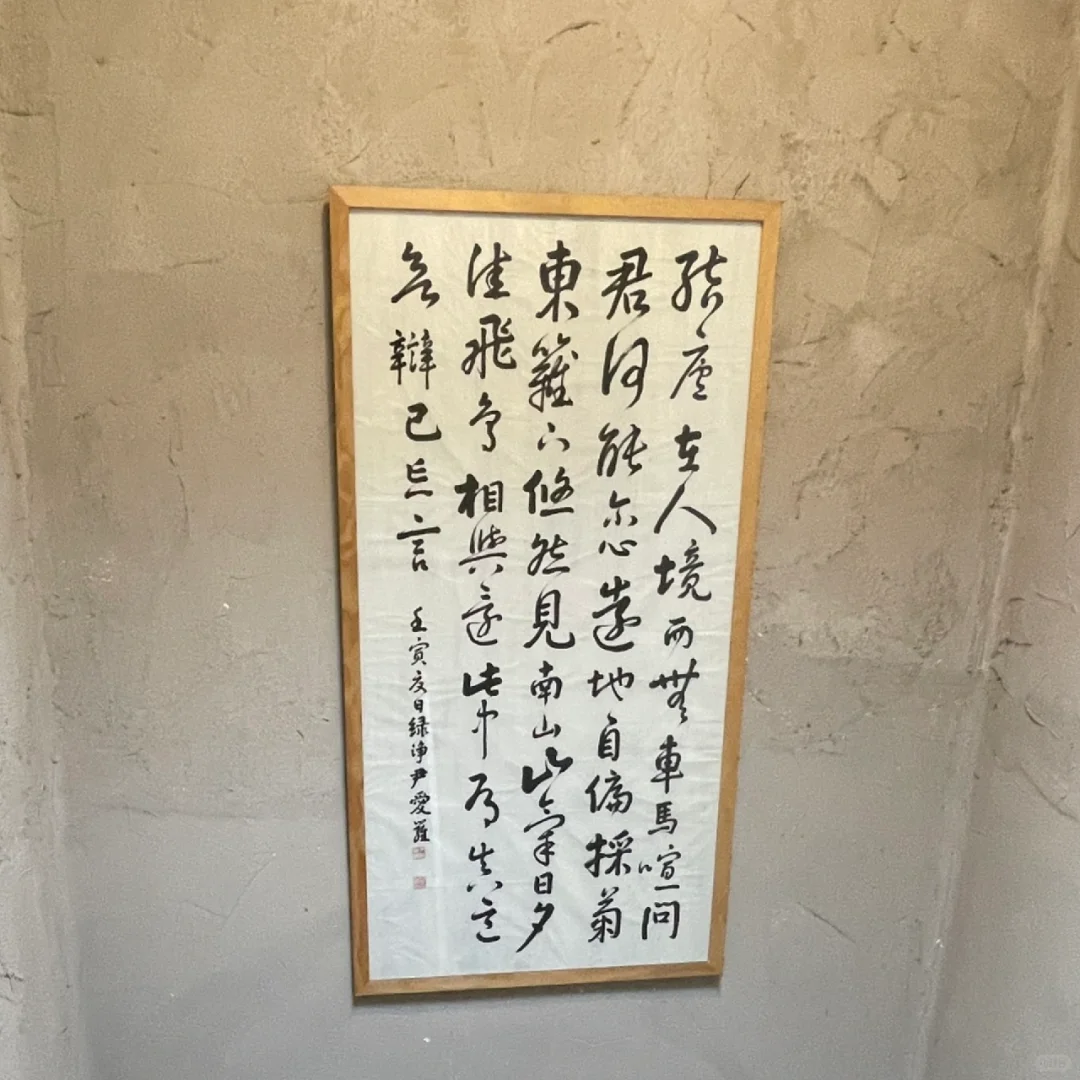 結廬在人境而無車馬喧問
君何能尔心遠地自偏採菊
東籬下悠然見南山山氣日夕
佳飛鳥相與還此中有真意
欲辯已忘言
壬寅夏日緑净尹愛羅